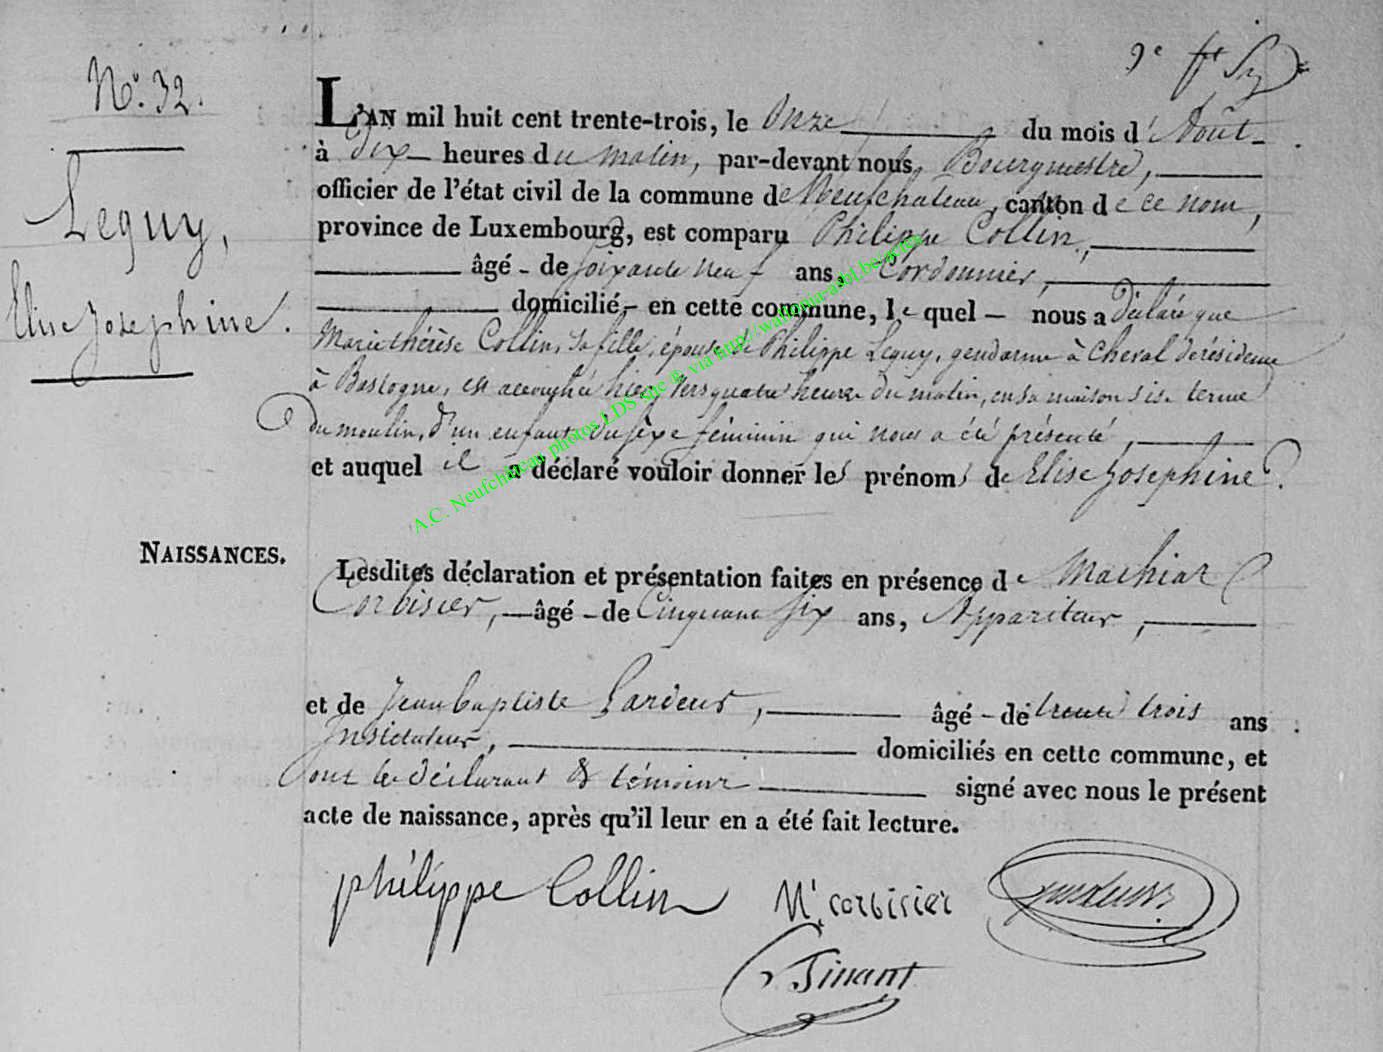 9e ft
N° 32.
Leguy,
Elise Josephine.
L'AN mil huit cent trente-trois, le Onze du mois d'Août
à dix heures du matin, par-devant nous Bourgmestre,
officier de l'état civil de la commune de Neufchateau, canton de ce nom,
province de Luxembourg, est comparu Philippe Collin,
âgé - de soixante neuf ans, Cordonnier,
domicilié - en cette commune, lequel nous a déclaré que
Marie thérèse Collin, sa fille, épouse de Philippe Leguy, gendarme à cheval de résidence
à Bastogne, est accouchée hier, vers quatre heures du matin, en sa maison sise terme
du moulin, d'un enfant du sèxe féminin qui nous a été présenté,
et auquel il a déclaré vouloir donner les prénoms de Elise Josephine.
A.C. Neufchâteau photos LDS site @ via http://wallonia-asbl.be/actes
NAISSANCES.
Lesdites déclaration et présentation faites en présence de Machiar
Corbisier, âgé - de Cinquante six ans, Appariteur,
et de Jean baptiste Lardeur, âgé - de trente trois ans
Instituteur, domiciliés en cette commune, et
ont les déclarant & témoins signé avec nous le présent
acte de naissance, après qu'il leur en a été fait lecture.
philippe Collin Mr corbisier
Tinant